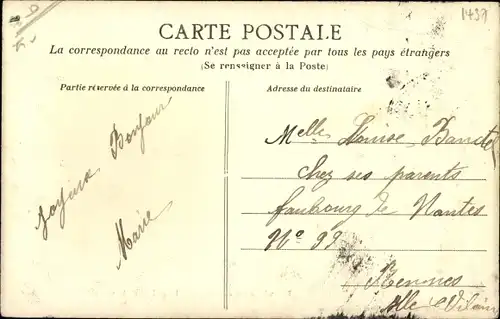 1437
CARTE POSTALE
La correspondance au recto n'est pas acceptée par tous les pays étrangers
(Se renseigner à la Poste)
Partie réservée à la correspondance
Adresse du destinataire
Joyeux Bonjour
Marie
Melle Louise
chez ses parents
faubourg de Nantes
No 99
Rennes
Ille & Vilaine